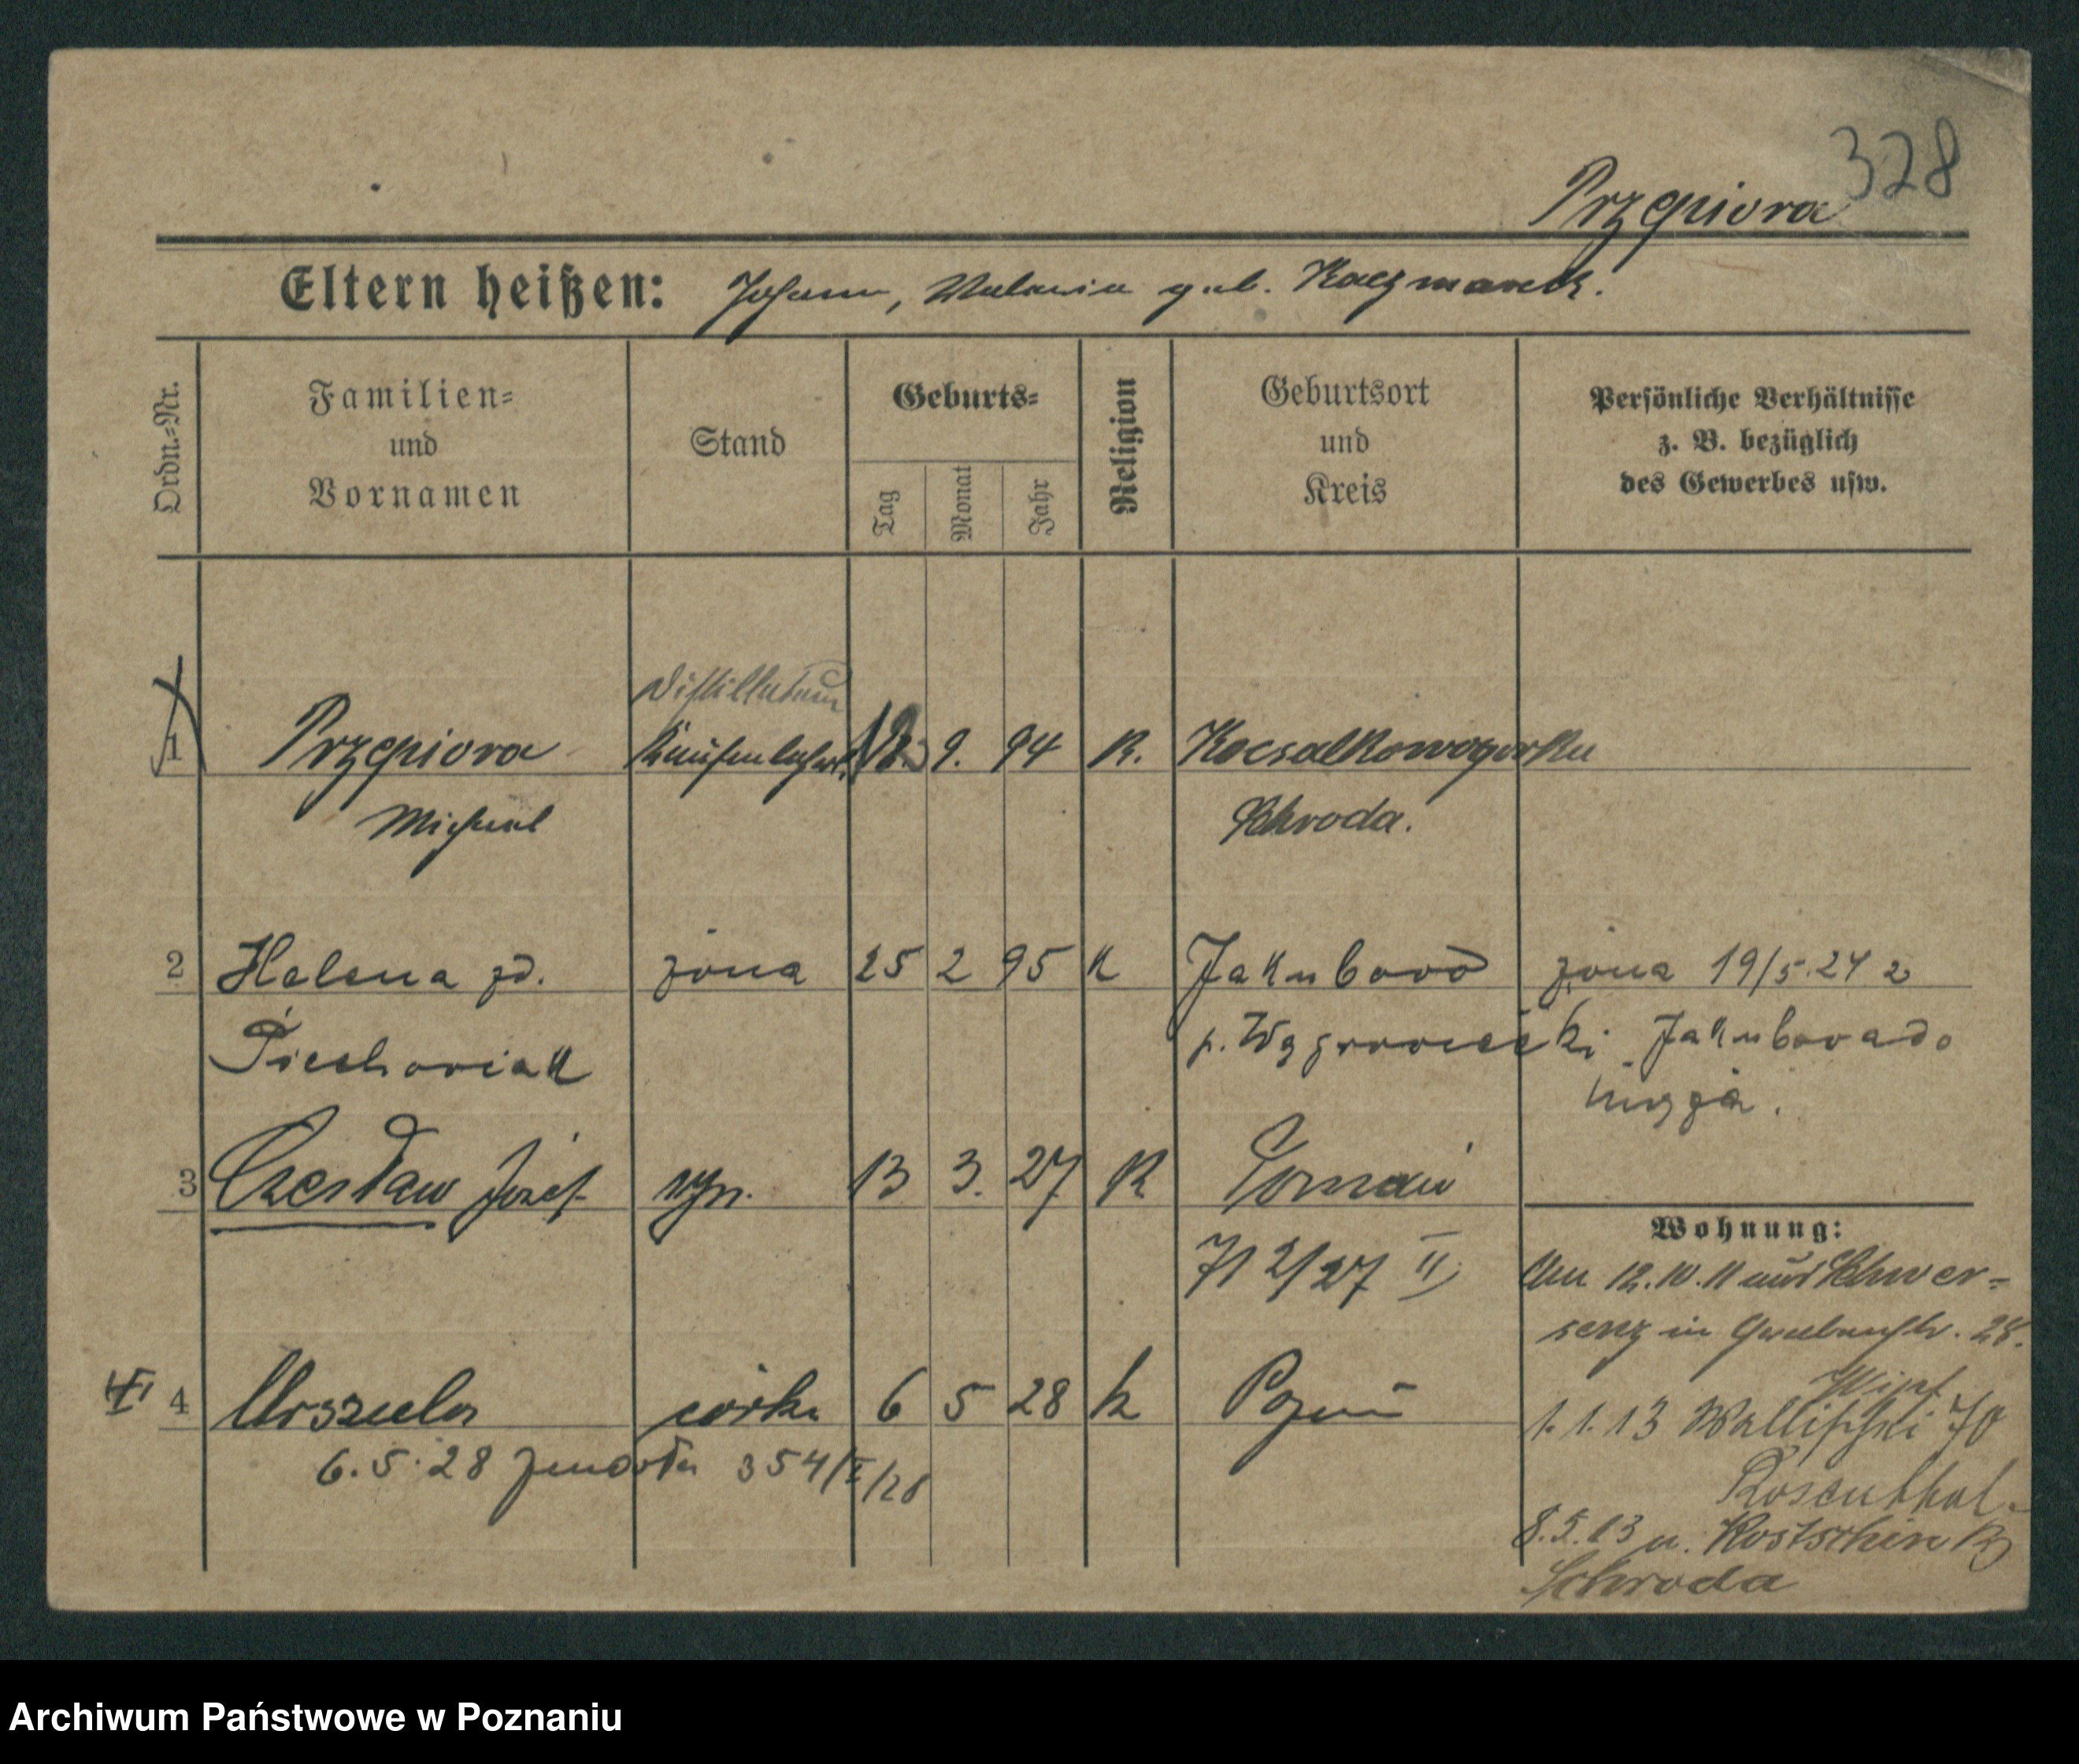 328
Przepiora
Eltern heißen: Johann, Valeria geb. Kaczmarek.
Ordn.=Nr.
Familien=
und
Vornamen
Stand
Geburts=
Tag
Monat
Jahr
Religion
Geburtsort
und
Kreis
Persönliche Verhältnisse
z. B. bezüglich
des Gewerbes usw.
1 Przepiora 9. 94 K.
Michael Schroda.
2 Helena zd. żona 25 2 95 K Jakubowo żona 19/5.24 z
Piechowiak p. Wągrowiecki Jakubowa do
męża.
3 Czesław Józef syn. 13 3. 27 K Poznań
71 2/27 II
Wohnung:
Am 12.10.11 aus Schwer=
senz in 28.
4 Urszula córka 6 5 28 k Poznań
6.5.28 354/II/28
1.1.13 Wallischei 70
Rosenthal
8.5.13 n. Kostschin K
Schroda
Archiwum Państwowe w Poznaniu